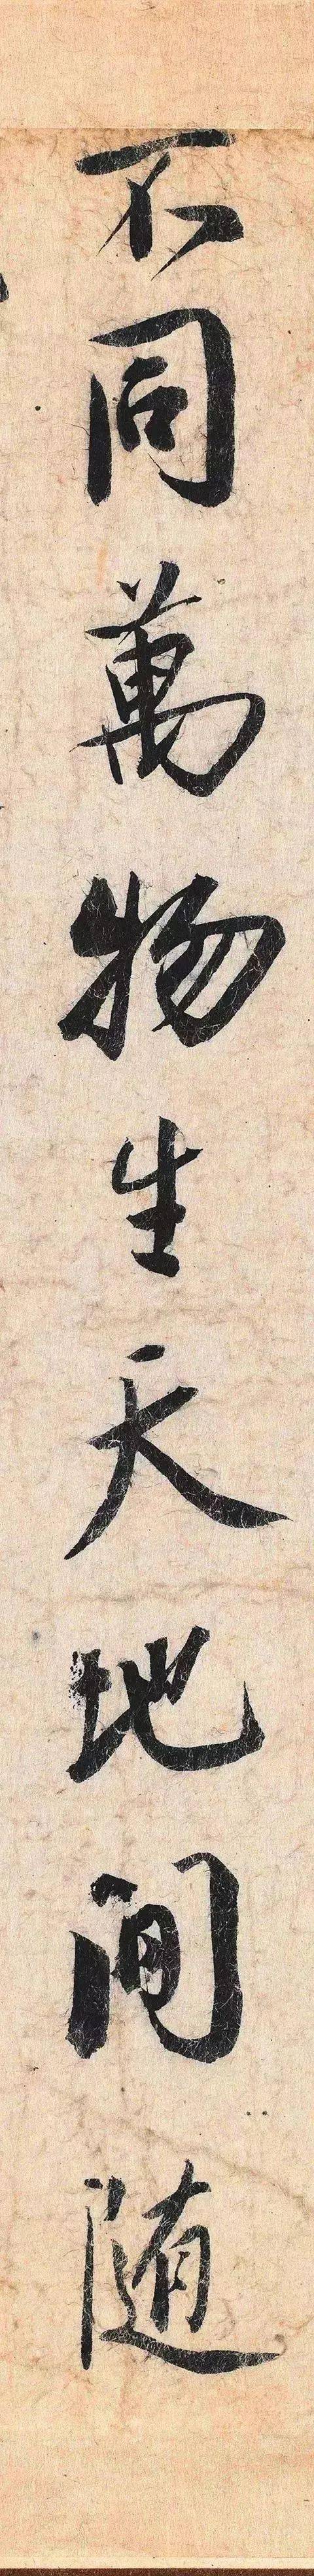 不同萬物生天地間随